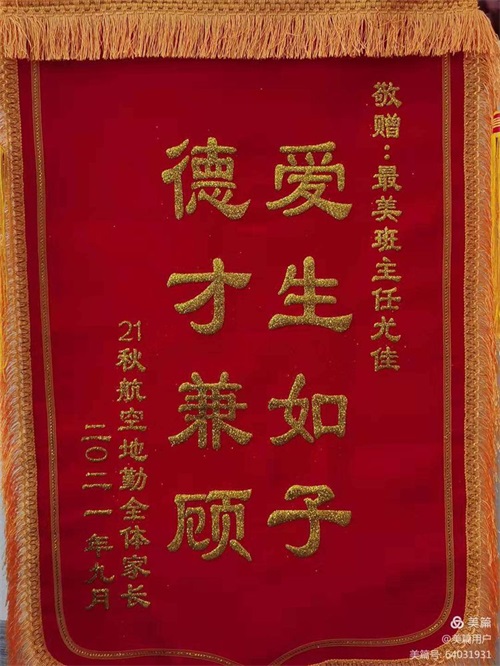 敬赠：最美班主任尤佳
爱生如子
德才兼顾
21秋航空地勤全体家长
二〇二一年九月
美篇
@美篇用户
美篇号: 64031931